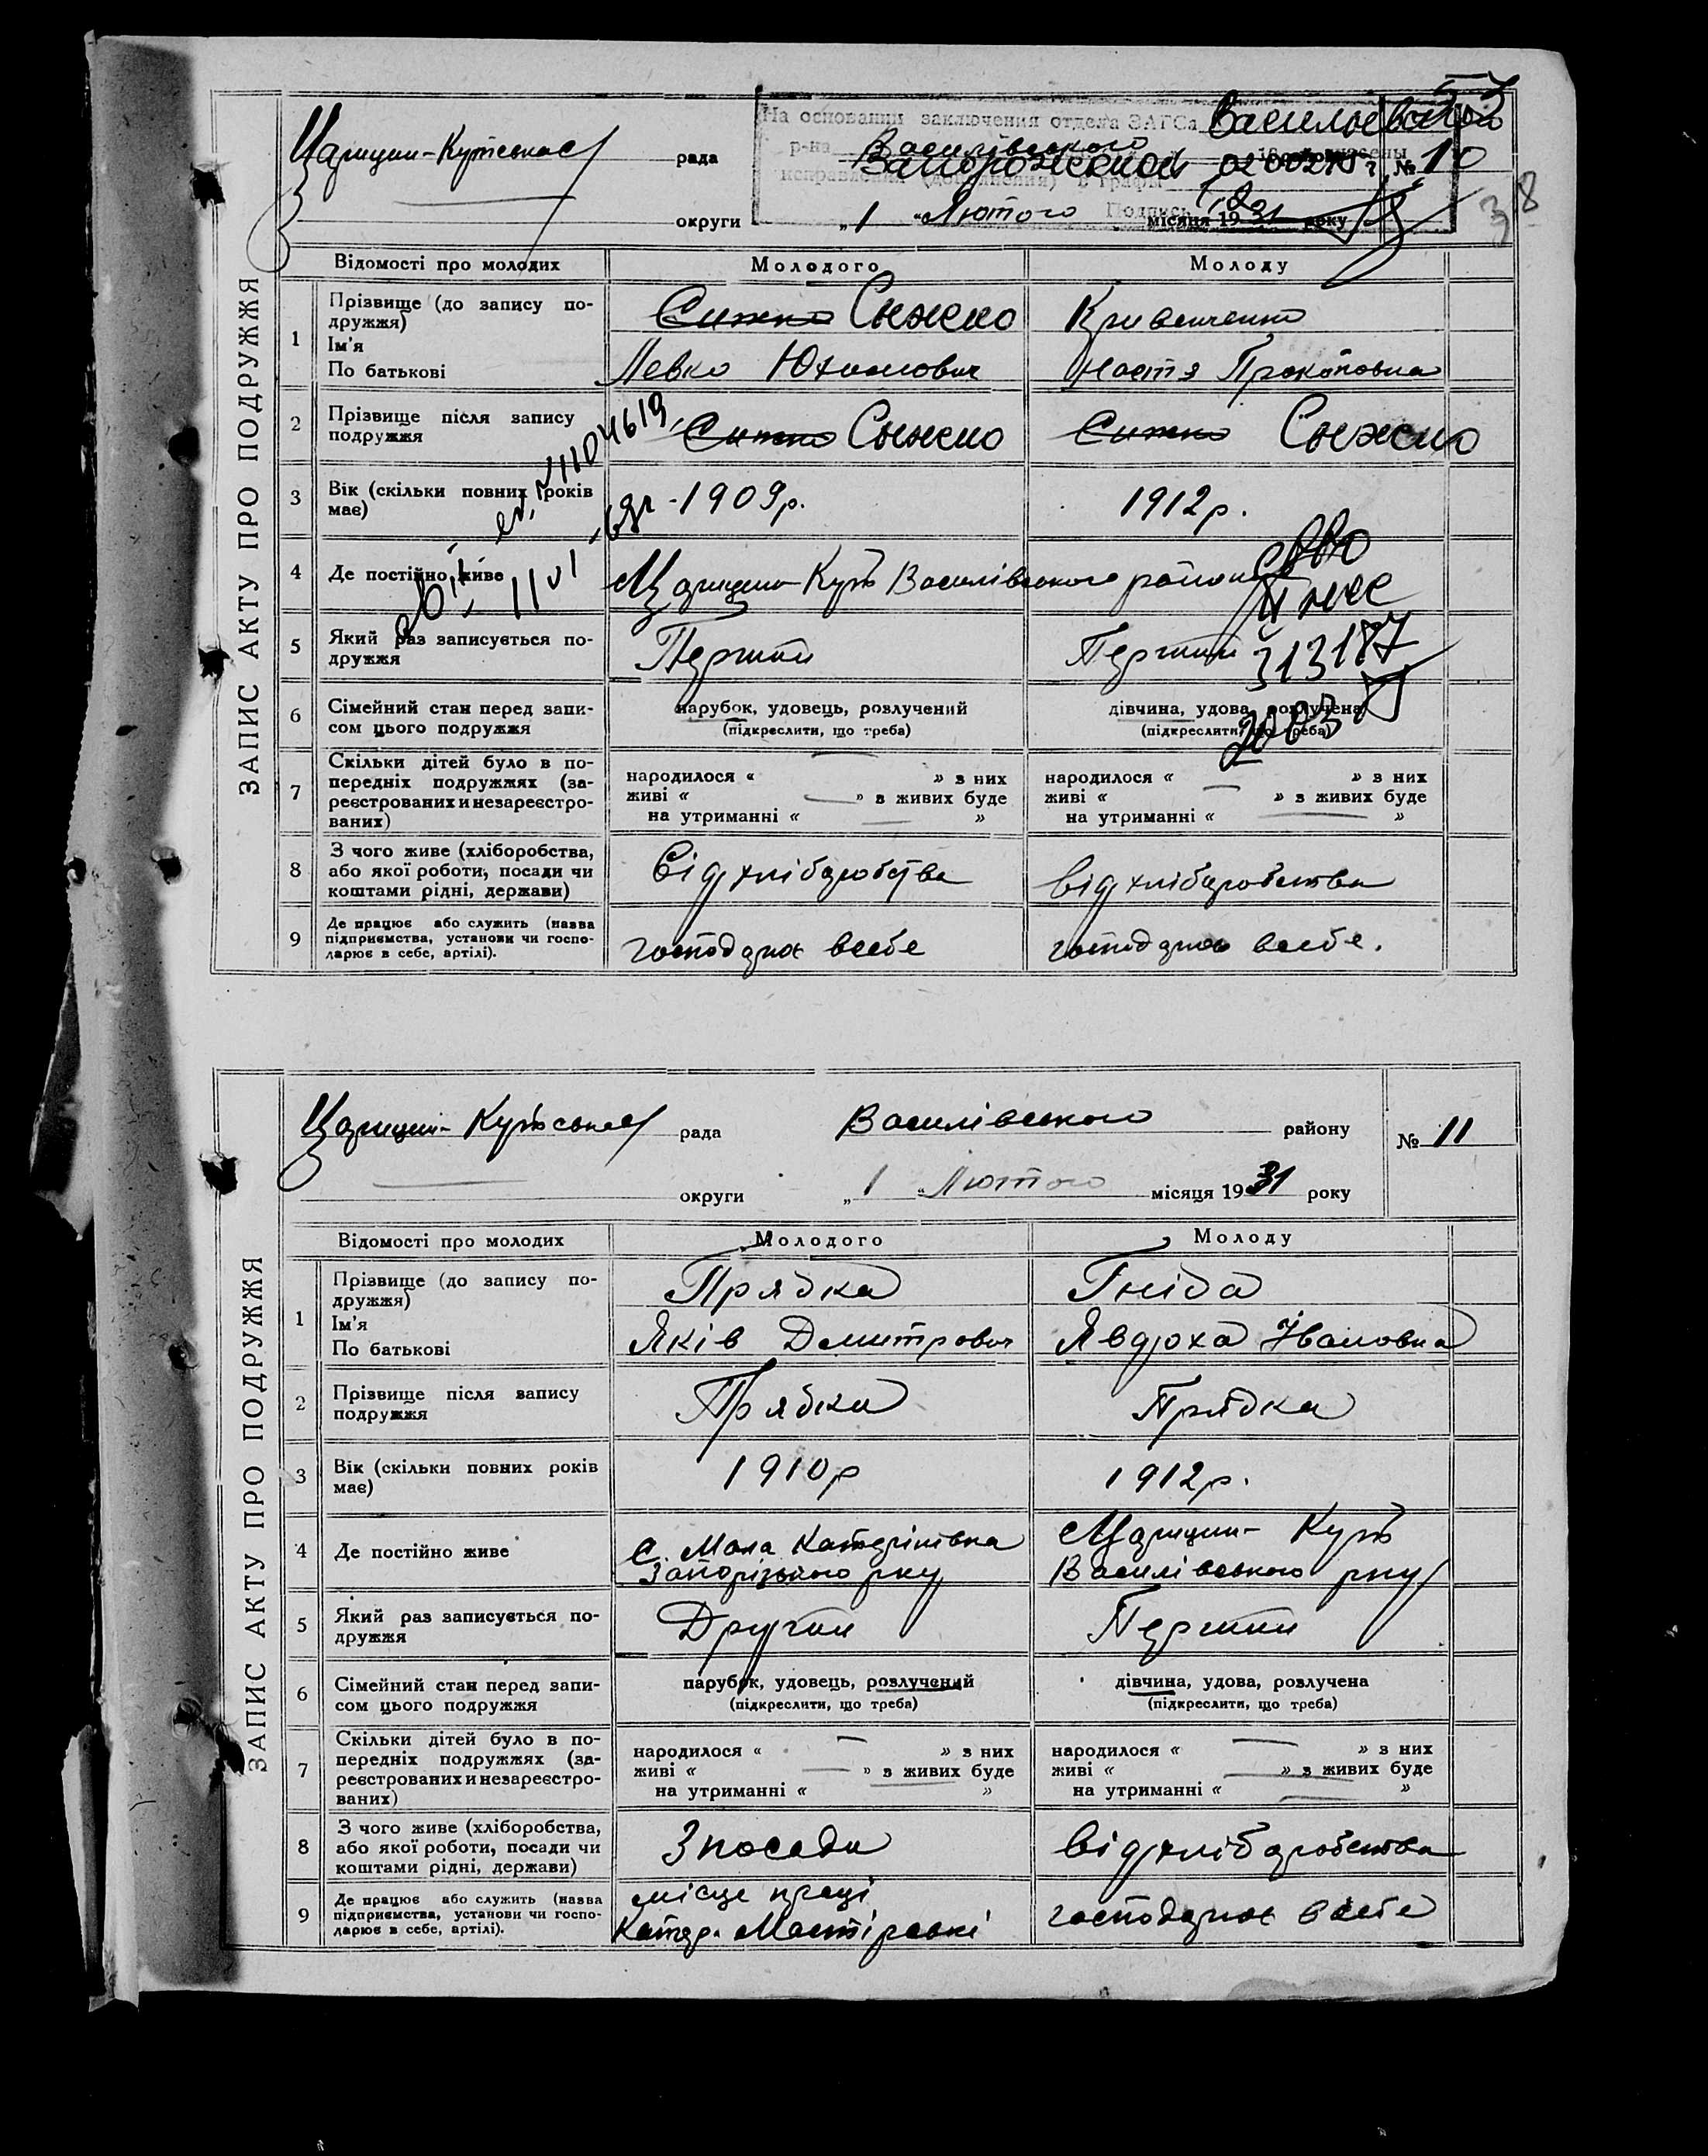 ЗАПИС АКТУ ПРО ПОДРУЖЖЯ
На основании заключения отдела ЗАГСа Васильевского
р-на Запорожской внесены
исправления (дополнения) в графы 1, 2
Подпись
Царицин-Кутська рада Василівського № 10
округи „1" Лютого місяця 1931 року
38
Відомості про молодих Молодого Молоду
1 Прізвище (до запису по-
дружжя)
Ім'я
По батькові
Сижко Снежко Кривенченко
Левко Юхимович Настя Прокоповна
2 Прізвище після запису
подружжя
Сижко Снежко Сижко Снежко
3 Вік (скільки повних років
має)
1909р. 1912р.
4 Де постійно живе
Царицин-Кут Василівського району
5 Який раз записується по-
дружжя
Перший Перший
313187
6 Сімейний стан перед запи-
сом цього подружжя
парубок, удовець, розлучений дівчина, удова, розлучена
(підкреслити, що треба) (підкреслити, що треба)
7 Скільки дітей було в по-
передніх подружжях (за-
реєстрованих и незареєстро-
ваних)
народилося « — » з них народилося « — » з них
живі « — » з живих буде живі « » з живих буде
на утриманні « — » на утриманні « — »
8 З чого живе (хліборобства,
або якої роботи, посади чи
коштами рідні, держави)
Від хліборобства від хліборобства
9 Де працює або служить (назва
підприємства, установи чи госпо-
дарює в себе, артілі).
господарює в себе господарює в себе.
ЗАПИС АКТУ ПРО ПОДРУЖЖЯ
Царицин-Кутська рада Василівського району № 11
округи „1" Лютого місяця 1931 року
Відомості про молодих Молодого Молоду
1 Прізвище (до запису по-
дружжя)
Ім'я
По батькові
Прядка Гніда
Яків Дмитрович Явдоха Івановна
2 Прізвище після запису
подружжя
Прядка Прядка
3 Вік (скільки повних років
має)
1910р 1912р.
4 Де постійно живе
с. Мала Катерінівка Царицин-Кут
Запорізького рну Василівського рну
5 Який раз записується по-
дружжя
Другий Перший
6 Сімейний стан перед запи-
сом цього подружжя
парубок, удовець, розлучений дівчина, удова, розлучена
(підкреслити, що треба) (підкреслити, що треба)
7 Скільки дітей було в по-
передніх подружжях (за-
реєстрованих и незареєстро-
ваних)
народилося « — » з них народилося « — » з них
живі « — » з живих буде живі « — » з живих буде
на утриманні « » на утриманні « — »
8 З чого живе (хліборобства,
або якої роботи, посади чи
коштами рідні, держави)
З посади від хліборобства
9 Де працює або служить (назва
підприємства, установи чи госпо-
дарює в себе, артілі).
місце праці
Катер. господарює в себе